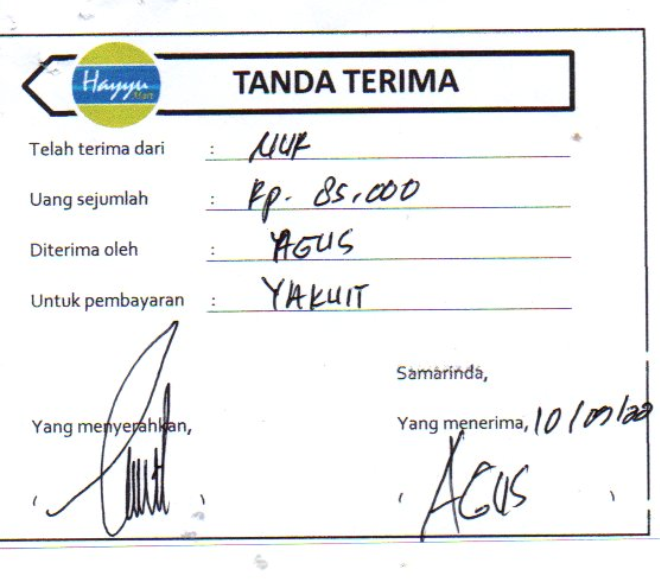 Hayyu
Mart
TANDA TERIMA
Telah terima dari : NUR
Uang sejumlah : Rp. 85.000
Diterima oleh : AGUS
Untuk pembayaran : YAKULT
Samarinda,
Yang menyerahkan, Yang menerima, 10/09/22
( ) ( AGUS )